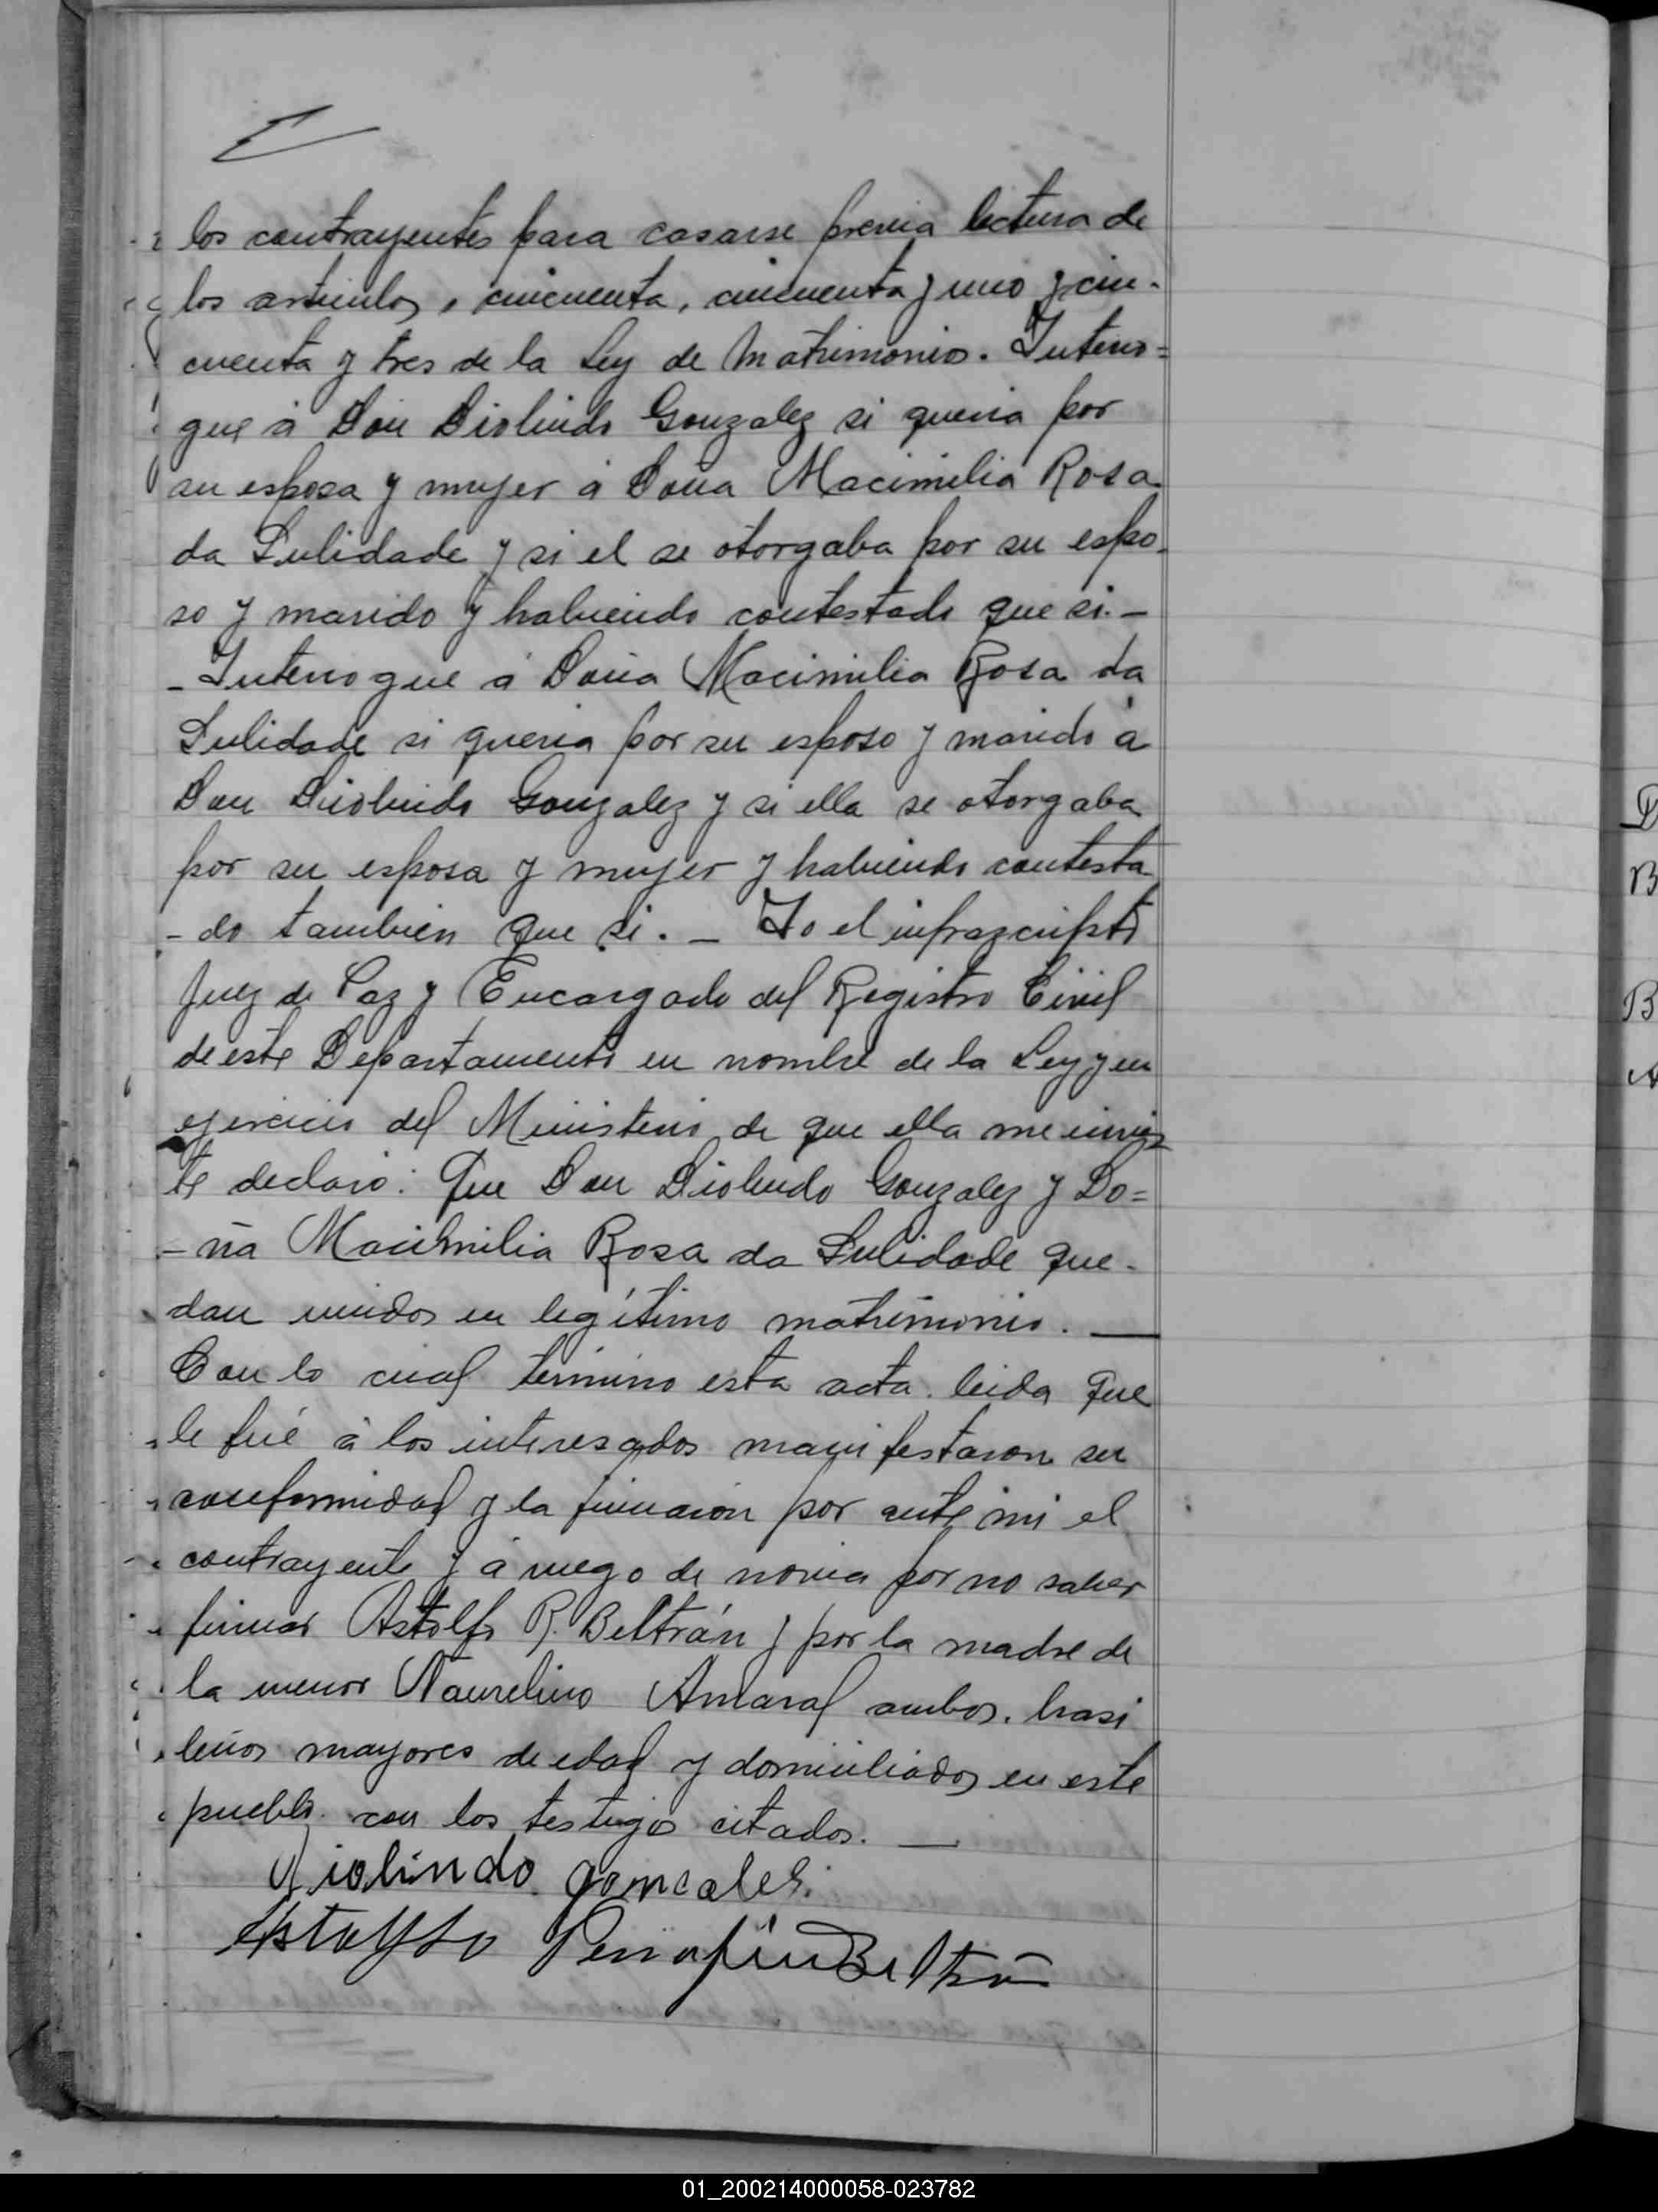 los contrayentes para casarse previa lectura de
los articulos, cincuenta, cincuenta y uno y cin-
cuenta y tres de la Ley de Matrimonio. Interro=
gue á Don Diolindo Gonzalez si queria por
su esposa y mujer á Doña Macimilia Rosa
da Sulidade y si el se otorgaba por su espo-
so y marido y habiendo contestado que si.-
- Interrogue á Doña Macimilia Rosa da
Sulidade si queria por su esposo y marido á
Don Diolindo Gonzalez y si ella se otorgaba
por su esposa y mujer y habiendo contesta
- do tambien que si. - Yo el infrazcripto
Juez de Paz y Encargado del Registro Civil
de este Departamento en nombre de la Ley y en
ejercicio del Ministerio de que ella me invis
te declaro: Que Don Diolindo Gonzalez y Do=
- ña Macimilia Rosa da Sulidade que-
dan unidos en legítimo matrimonio. —
Con lo cual termino esta acta. leida que
le fué á los interesados manifestaron su
conformidad y la firmaron por ante mi el
contrayente y á ruego de novia por no saber
firmar Astolfo R. Beltrán y por la madre de
la menor Naurelino Amaral ambos. brasi
leños mayores de edad y domiciliados en este
pueblo. con los testigos citados. —
Diolindo goncales.
Astolfo Beltrán
D
B
B
A
01_200214000058-023782